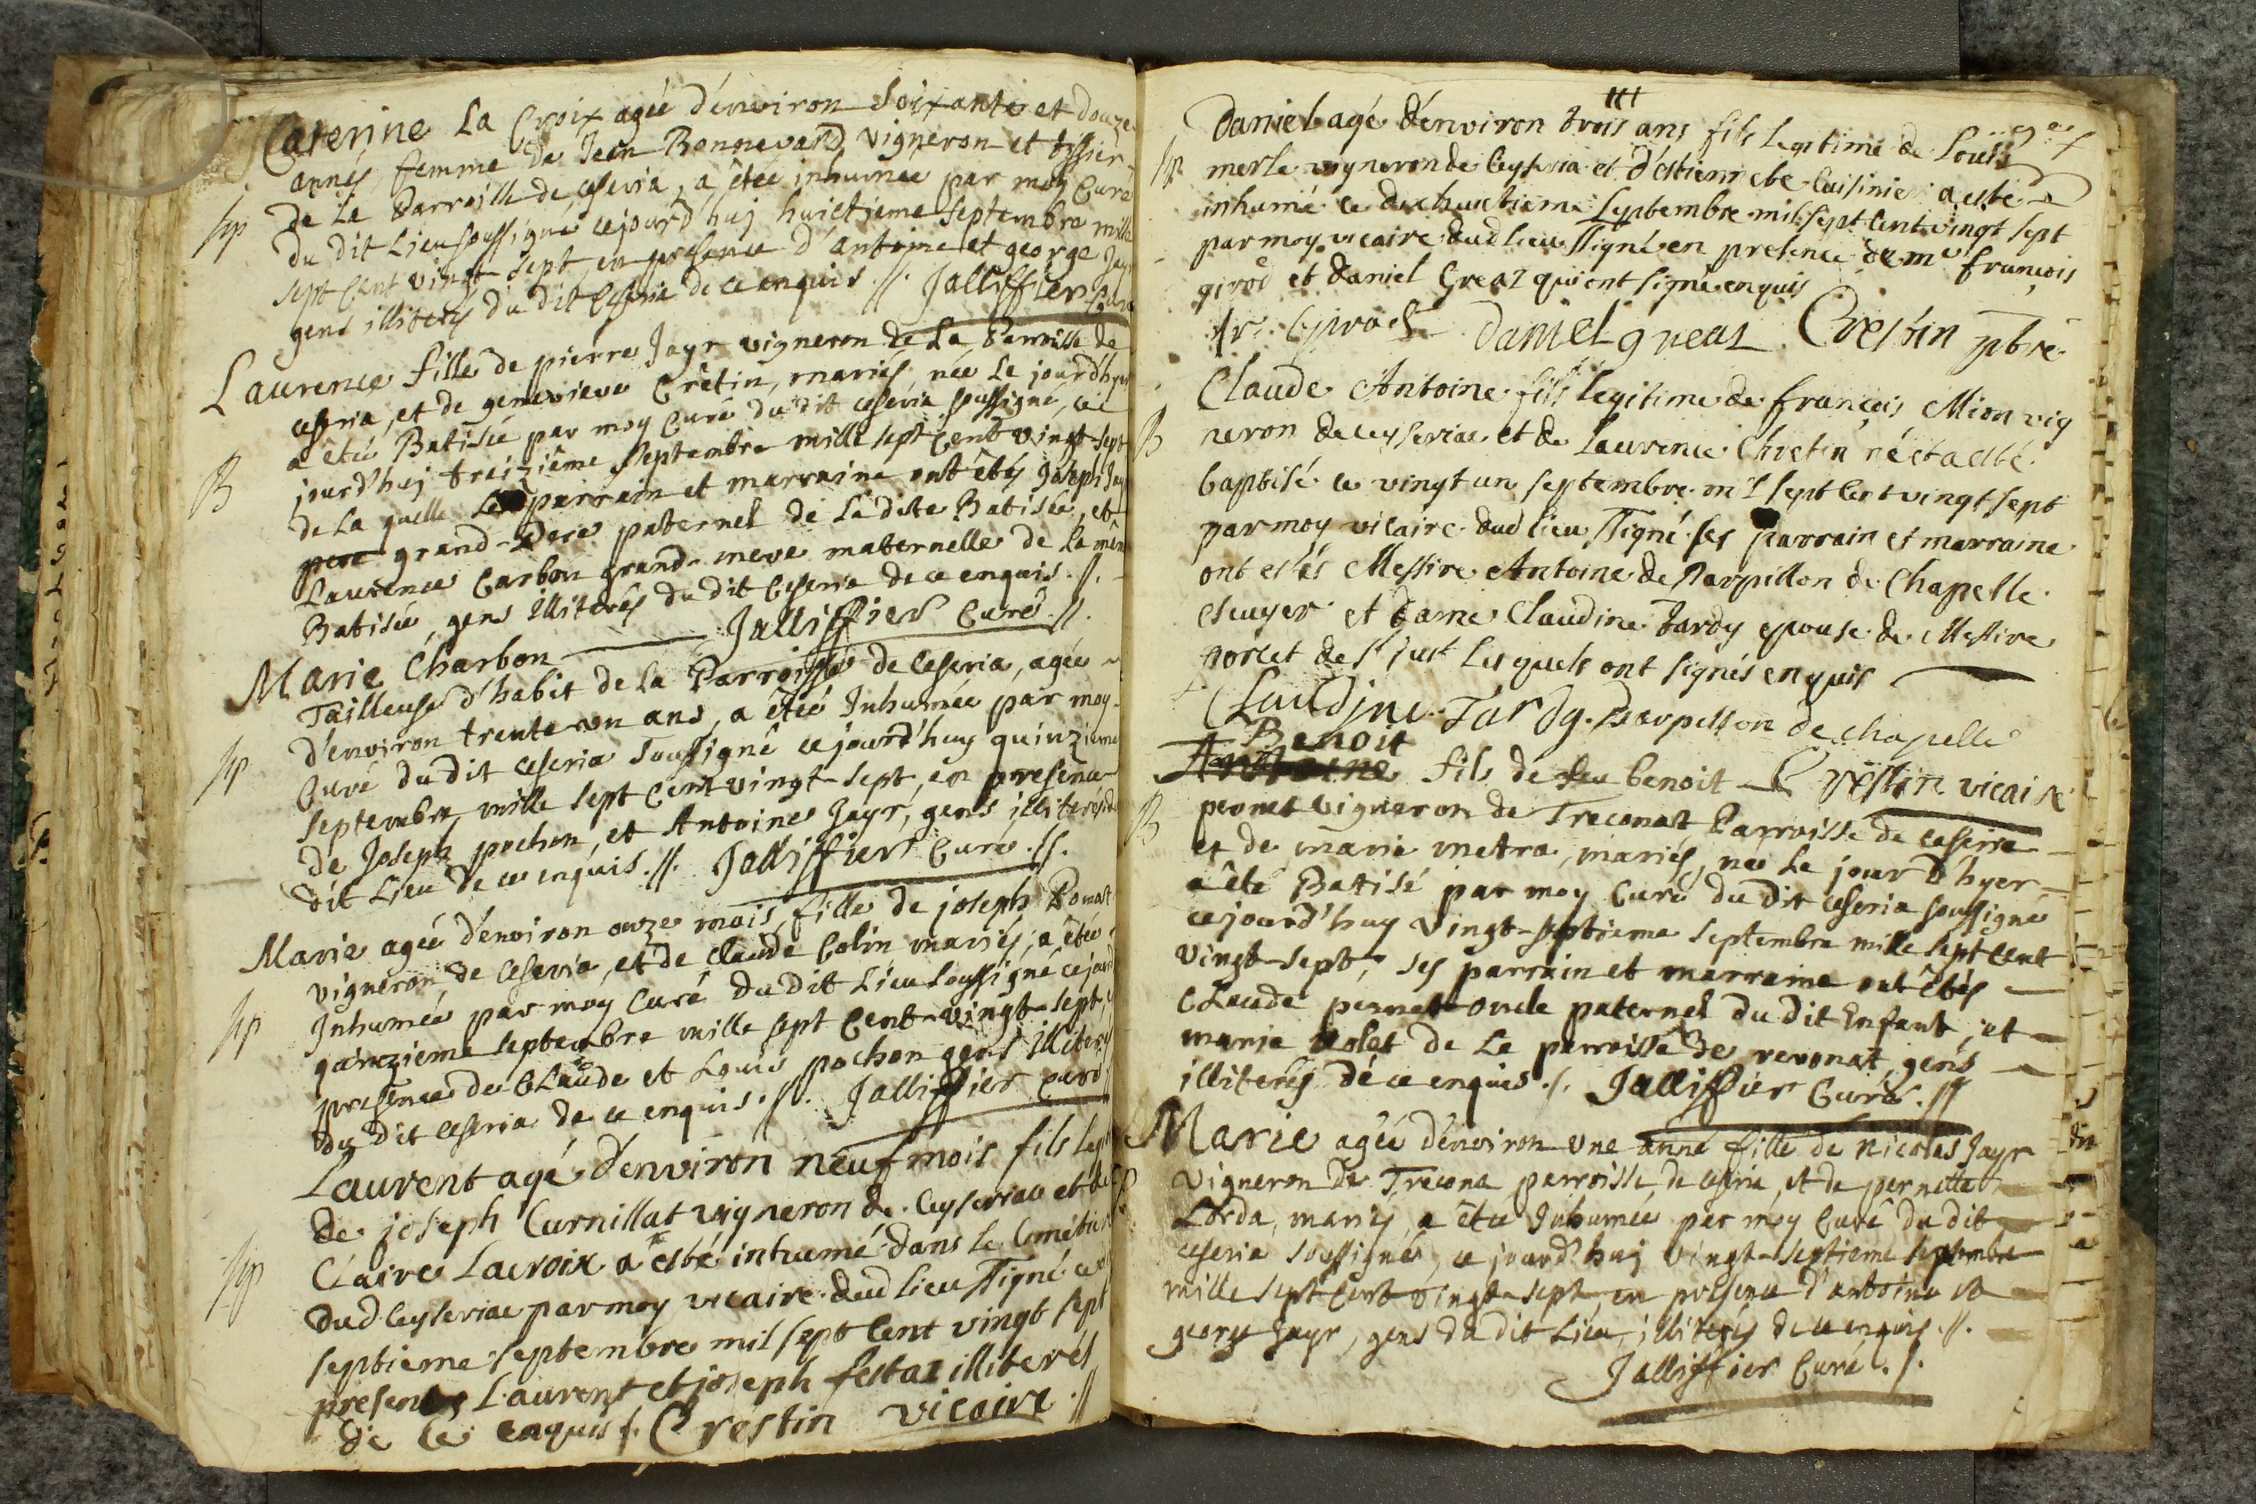 Caterine La Croix agée d'environ Soixante et douze
années femme de Jean Bonnevard vigneron et tissier
Sep
de La Parroisse de Ceseria, a étée inhumée par moy Curé
du dit Lieu soussigné cejourd'huj huictieme Septembre mille
sept Cent vingt-sept, en presence d'antoine et george Jayr
gens illiterés du dit Ceseria de ce enquis ·//· Jalliffier Curé
Laurence fille de pierre Jayr vigneron de La Parroisse de
Ceseria, et de genevieve Crêtin, mariés, née Le jourd'hyer
a étée Batisée par moy Curé du dit Ceseria soussigné, ce
B
jourd'huj treizième Septembre mille sept Cent vingt-sept
de La quelle Le parrain et marraine ont êtés Joseph Jayr
pere grand-Pere paternel de La dite Batisée, et
Laurence Carbon grand-mere maternelle de La même
Batisée, gens illiterés du dit Ceseria de ce enquis ·//·
Jalliffier Curé ·//·
Marie Charbon
Tailleuse d'habit de La Parroisse de Ceseria, agée
d'environ trente-un ans, a étée Inhumée par moy
Sep
Curé du dit Ceseria Soussigné cejourd'huy quinzieme
Septembre, mille sept Cent vingt-sept, en presence
de Joseph pochon, et Antoine Jayr, gens illiterés du
dit Lieu de ce enquis ·//· Jalliffier Curé ·//·
Marie agée d'environ onze mois, fille de joseph Ponast
vigneron de Ceseria, et de Claude Colin, mariés, a êtée
Sep
Inhumée par moy Curé du dit Lieu soussigné cejourd
quinzieme septembre mille sept Cent-vingt-sept,
presence de Claude et Louis pochon gens illiterés
du dit Ceseria de ce enquis ·//· Jalliffier Curé
Laurent agé d'environ neuf mois fils leg
de joseph Curnillat vigneron de Ceyseriac et de
Sep
Claire Lacroix a esté inhumé dans le Cimétiere
dud Ceyseriac par moy vicaire dud lieu ssigné ce
septieme septembre mil sept Cent vingt sept
presents Laurent et joseph festaz illiterés
de ce enquis /. Crestin vicaire ·//
Daniel agé d'environ trois ans fils legitime de Louis
Sep
merle vigneron de Ceyseria et d'estiennette Cuisinier a esté
inhumé ce dixhuictieme Septembre mil sept Cent vingt sept
par moy vicaire dud lieu ssigné en presence de me françois
girod et daniel Greaz qui ont signé enquis
fr. Girod Daniel greaz Crestin pbre
Claude Antoine fils legitime de françois Mion vig
B
neron de Ceyseriac et de Laurence Chretin né et a esté
baptisé ce vingt un septembre mil sept Cent vingt sept
par moy vicaire dud lieu ssigné ses parrain et marraine
ont estés Messire Antoine de Parpillon de Chapelle
escuyer et dame Claudine tardy epouse de Messire
norcet de st just Lesquels ont signés enquis
Claudine Tardy. Parpillon de chapelle
Benoit
Antoine fils de feu benoit Crestin vicaire
B
pernet vigneron de Treconat Parroisse de Ceseria
et de marie metra, mariés, né Le jour d'hyer
a êté Battisé par moy Curé du dit Ceseria soussigné
cejourd'huy vingt-septieme septembre mille sept Cent
vingt-sept, ses parrain et marraine ont êtés
Claude pernet oncle paternel du dit Enfant, et
marie Volet de La parroisse de revonat, gens
illiterés de ce enquis ·/. Jalliffier Curé ·//
Marie agée d'environ une anné fille de Nicolas Jayr
Sep
Vigneron de Trecona parroisse de Ceseria, et de pernette
Lorda, mariés, a êtée Inhumée par moy Curé du dit
Ceseria soussigné, ce jourd'huj vingt-septieme septembre
mille sept Cent vingt-sept, en presence d'antoine et
george Jayr, gens du dit Lieu, illiterés de ce enquis ·//·
Jalliffier Curé ·/.